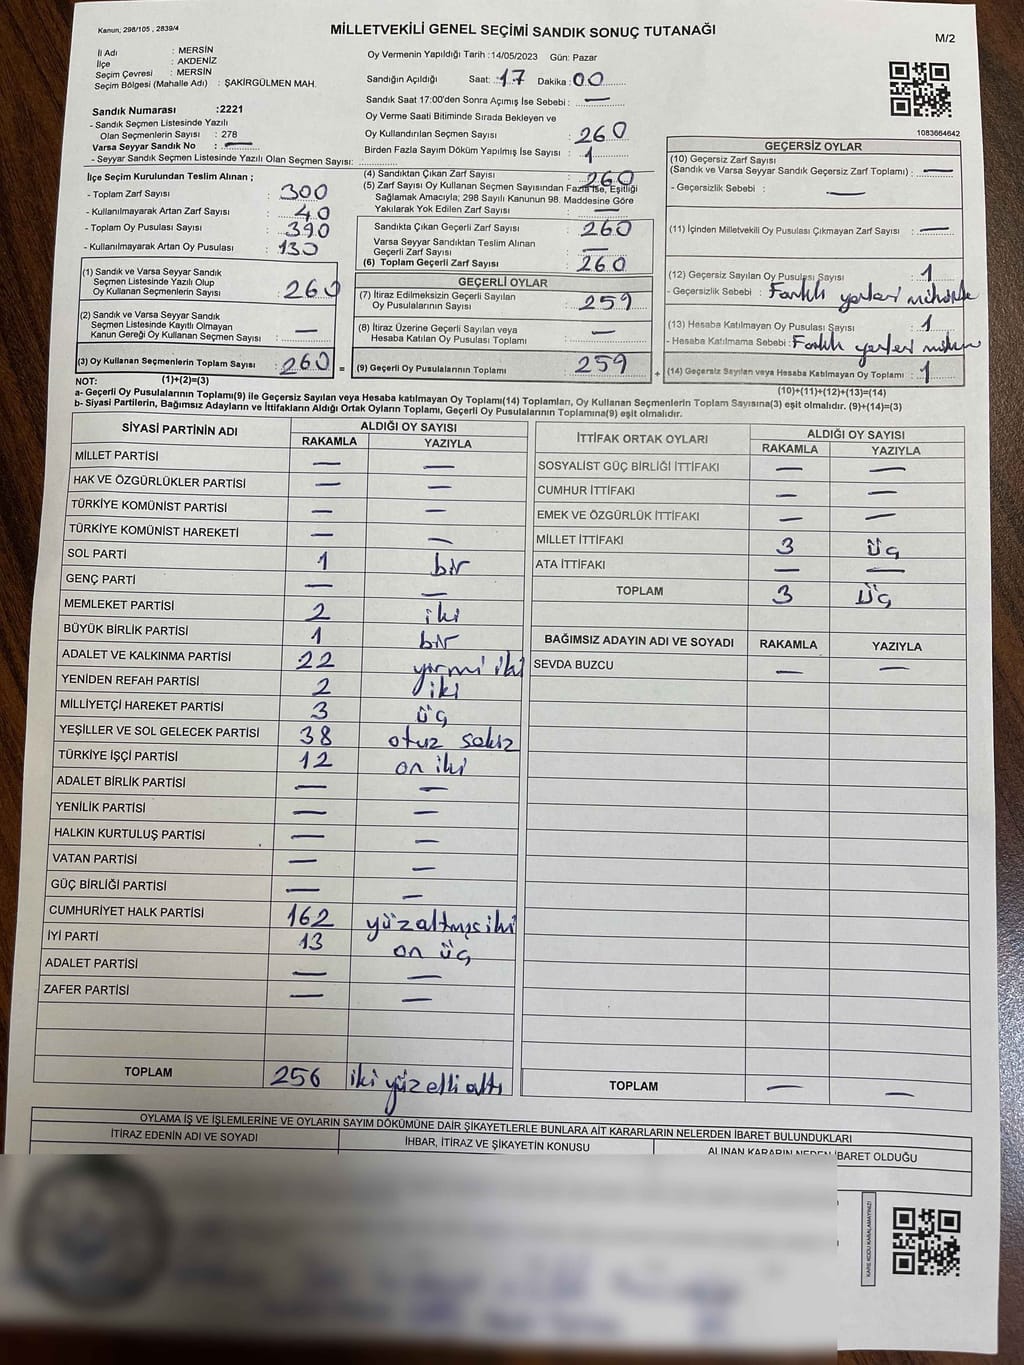 Kanun; 298/105 , 2839/4
MİLLETVEKİLİ GENEL SEÇİMİ SANDIK SONUÇ TUTANAĞI
M/2
İl Adı : MERSİN
İlçe : AKDENİZ
Seçim Çevresi : MERSİN
Seçim Bölgesi (Mahalle Adı) : ŞAKİRGÜLMEN MAH.
Sandık Numarası :2221
- Sandık Seçmen Listesinde Yazılı
Olan Seçmenlerin Sayısı : 278
Varsa Seyyar Sandık No : —
- Seyyar Sandık Seçmen Listesinde Yazılı Olan Seçmen Sayısı:
Oy Vermenin Yapıldığı Tarih :14/05/2023 Gün: Pazar
Sandığın Açıldığı Saat: 17 Dakika : 00
Sandık Saat 17:00'den Sonra Açımış İse Sebebi : —
Oy Verme Saati Bitiminde Sırada Bekleyen ve
Oy Kullandırılan Seçmen Sayısı : 260
Birden Fazla Sayım Döküm Yapılmış İse Sayısı : 1
1083664642
İlçe Seçim Kurulundan Teslim Alınan ;
- Toplam Zarf Sayısı : 300
- Kullanılmayarak Artan Zarf Sayısı : 40
- Toplam Oy Pusulası Sayısı : 390
- Kullanılmayarak Artan Oy Pusulası : 130
(1) Sandık ve Varsa Seyyar Sandık
Seçmen Listesinde Yazılı Olup
Oy Kullanan Seçmenlerin Sayısı : 260
(2) Sandık ve Varsa Seyyar Sandık
Seçmen Listesinde Kayıtlı Olmayan
Kanun Gereği Oy Kullanan Seçmen Sayısı : —
(3) Oy Kullanan Seçmenlerin Toplam Sayısı : 260
(4) Sandıktan Çıkan Zarf Sayısı : 260
(5) Zarf Sayısı Oy Kullanan Seçmen Sayısından Fazla İse, Eşitliği
Sağlamak Amacıyla; 298 Sayılı Kanunun 98. Maddesine Göre
Yakılarak Yok Edilen Zarf Sayısı : —
Sandıkta Çıkan Geçerli Zarf Sayısı : 260
Varsa Seyyar Sandıktan Teslim Alınan
Geçerli Zarf Sayısı : —
(6) Toplam Geçerli Zarf Sayısı : 260
GEÇERLİ OYLAR
(7) İtiraz Edilmeksizin Geçerli Sayılan
Oy Pusulalarının Sayısı : 259
(8) İtiraz Üzerine Geçerli Sayılan veya
Hesaba Katılan Oy Pusulası Toplamı : —
= (9) Geçerli Oy Pusulalarının Toplamı : 259
GEÇERSİZ OYLAR
(10) Geçersiz Zarf Sayısı
(Sandık ve Varsa Seyyar Sandık Geçersiz Zarf Toplamı) : —
- Geçersizlik Sebebi : —
(11) İçinden Milletvekili Oy Pusulası Çıkmayan Zarf Sayısı : —
(12) Geçersiz Sayılan Oy Pusulası Sayısı : 1
- Geçersizlik Sebebi : Farklı yerleri
(13) Hesaba Katılmayan Oy Pusulası Sayısı : 1
- Hesaba Katılmama Sebebi : Farklı yerleri
+ (14) Geçersiz Sayılan veya Hesaba Katılmayan Oy Toplamı : 1
NOT: (1)+(2)=(3)
(10)+(11)+(12)+(13)=(14)
a- Geçerli Oy Pusulalarının Toplamı(9) ile Geçersiz Sayılan veya Hesaba Katılmayan Oy Toplamı(14) Toplamları, Oy Kullanan Seçmenlerin Toplam Sayısına(3) eşit olmalıdır. (9)+(14)=(3)
b- Siyasi Partilerin, Bağımsız Adayların ve İttifakların Aldığı Ortak Oyların Toplamı, Geçerli Oy Pusulalarının Toplamına(9) eşit olmalıdır.
SİYASİ PARTİNİN ADI ALDIĞI OY SAYISI
RAKAMLA YAZIYLA
MİLLET PARTİSİ — —
HAK VE ÖZGÜRLÜKLER PARTİSİ — —
TÜRKİYE KOMÜNİST PARTİSİ — —
TÜRKİYE KOMÜNİST HAREKETİ — —
SOL PARTİ 1 bir
GENÇ PARTİ — —
MEMLEKET PARTİSİ 2 iki
BÜYÜK BİRLİK PARTİSİ 1 bir
ADALET VE KALKINMA PARTİSİ 22 yirmi iki
YENİDEN REFAH PARTİSİ 2 iki
MİLLİYETÇİ HAREKET PARTİSİ 3 üç
YEŞİLLER VE SOL GELECEK PARTİSİ 38 otuz sekiz
TÜRKİYE İŞÇİ PARTİSİ 12 on iki
ADALET BİRLİK PARTİSİ — —
YENİLİK PARTİSİ — —
HALKIN KURTULUŞ PARTİSİ — —
VATAN PARTİSİ — —
GÜÇ BİRLİĞİ PARTİSİ — —
CUMHURİYET HALK PARTİSİ 162 yüzaltmış iki
İYİ PARTİ 13 on üç
ADALET PARTİSİ — —
ZAFER PARTİSİ — —
TOPLAM 256 iki yüz elli altı
İTTİFAK ORTAK OYLARI ALDIĞI OY SAYISI
RAKAMLA YAZIYLA
SOSYALİST GÜÇ BİRLİĞİ İTTİFAKI — —
CUMHUR İTTİFAKI — —
EMEK VE ÖZGÜRLÜK İTTİFAKI — —
MİLLET İTTİFAKI 3 üç
ATA İTTİFAKI — —
TOPLAM 3 üç
BAĞIMSIZ ADAYIN ADI VE SOYADI RAKAMLA YAZIYLA
SEVDA BUZCU — —
TOPLAM — —
OYLAMA İŞ VE İŞLEMLERİNE VE OYLARIN SAYIM DÖKÜMÜNE DAİR ŞİKAYETLERLE BUNLARA AİT KARARLARIN NELERDEN İBARET BULUNDUKLARI
İTİRAZ EDENİN ADI VE SOYADI İHBAR, İTİRAZ VE ŞİKAYETİN KONUSU ALINAN KARARIN NEDEN İBARET OLDUĞU
KARE KODU KARALAMAYINIZ!